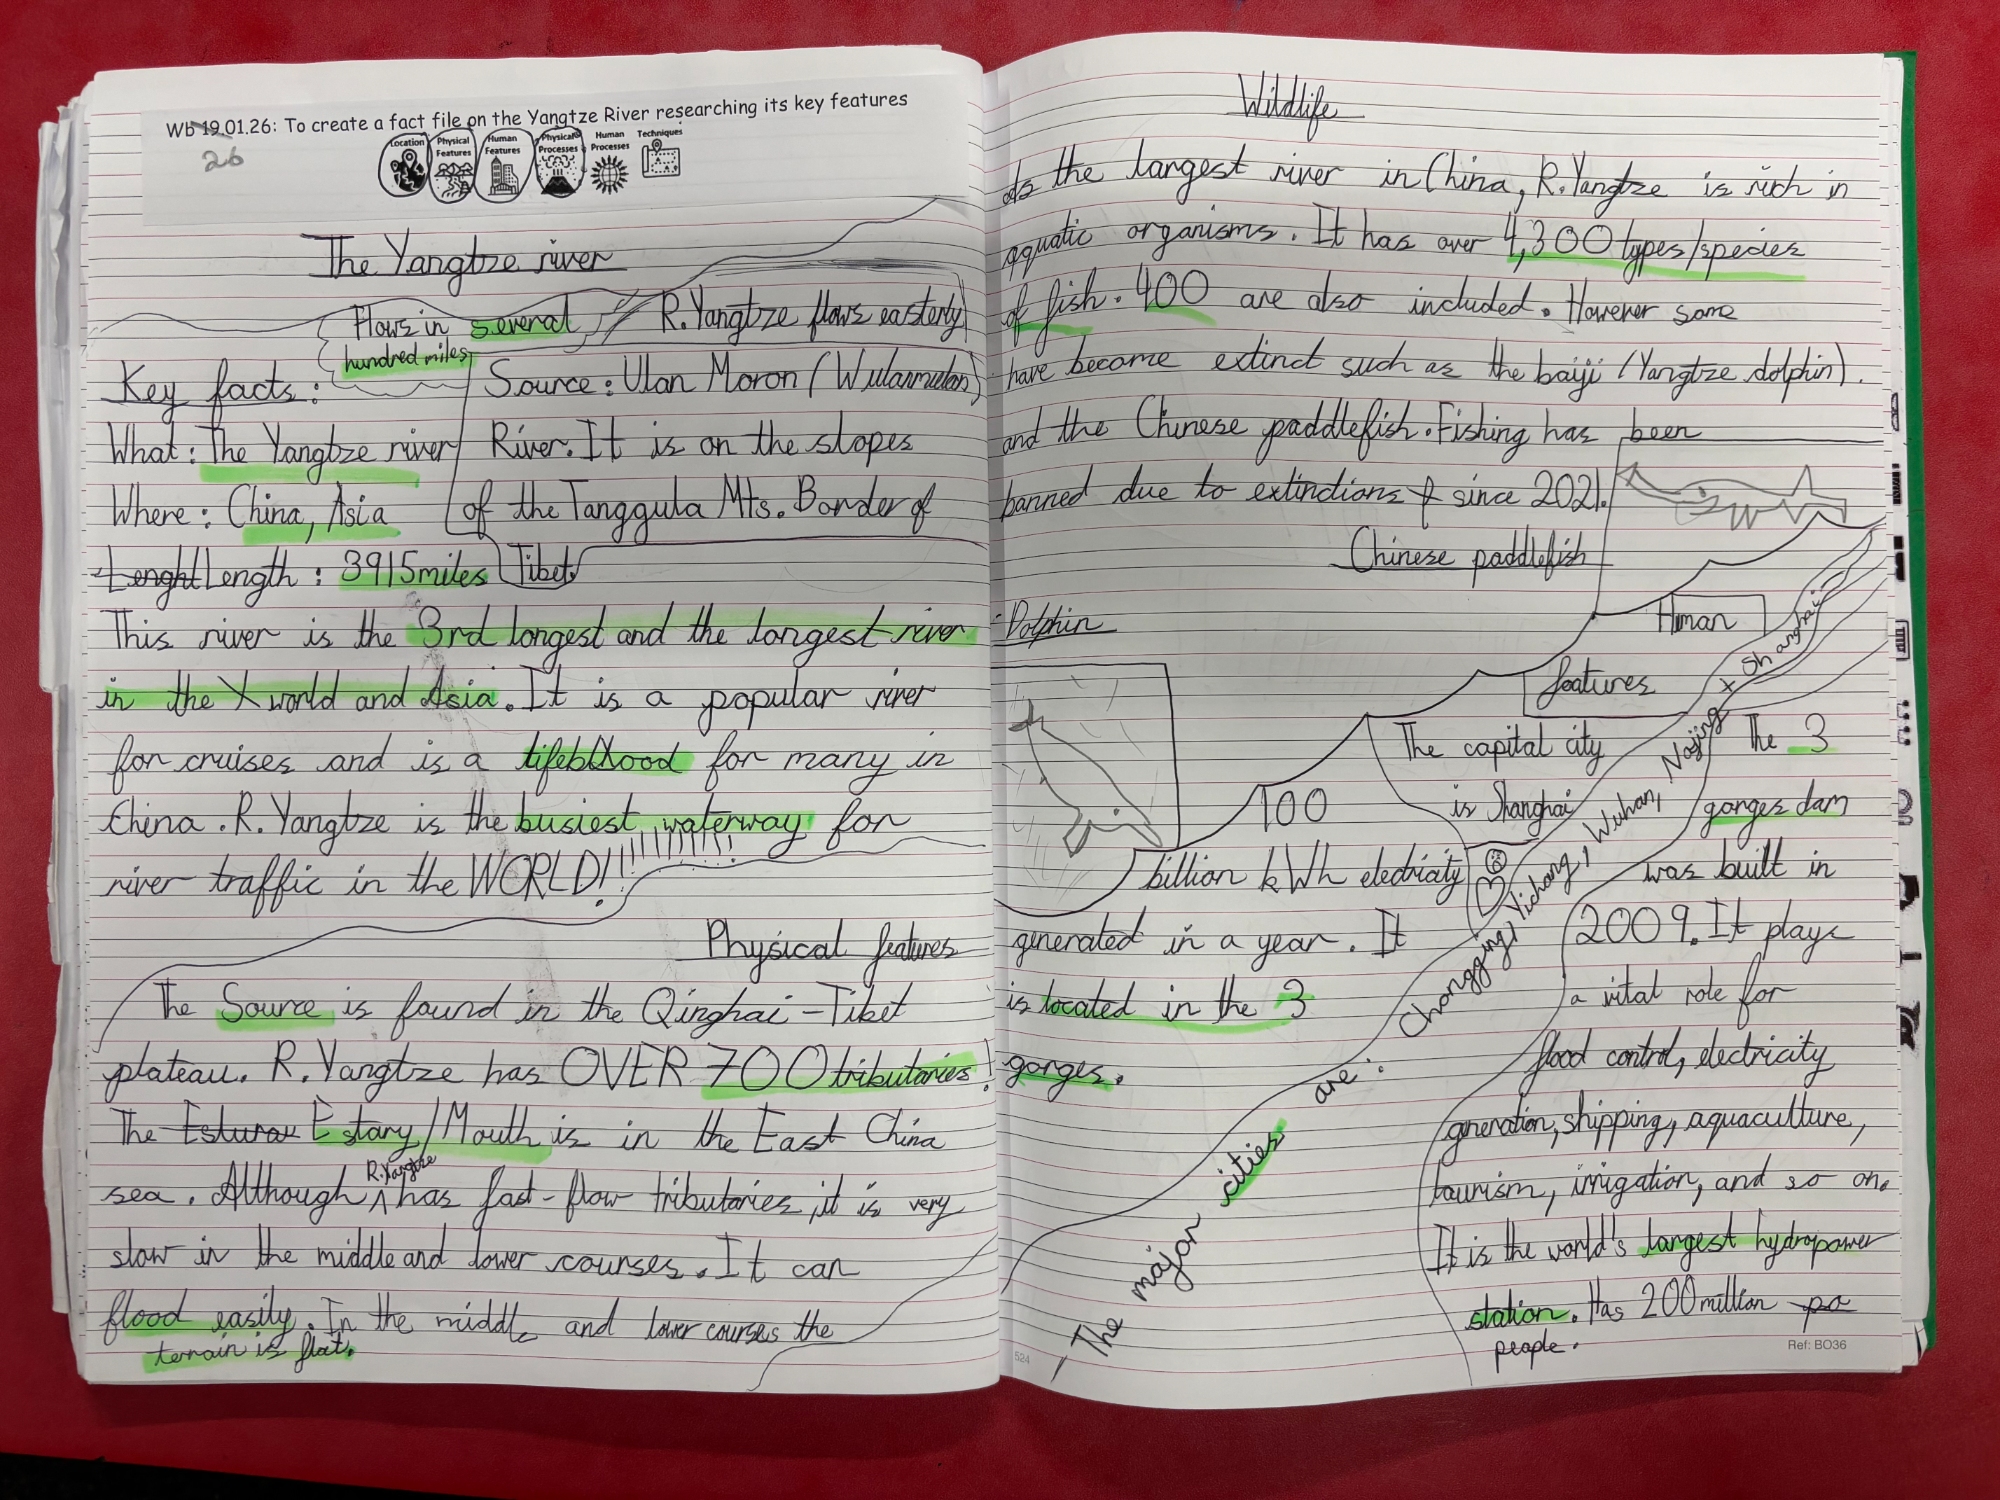 Wb 19.01.26: To create a fact file on the Yangtze River researching its key features
26
Location
Physical Features
Human Features
Physical Processes
Human Processes
Techniques
The Yangtze river
Flows in several
hundred miles
R.Yangtze flows easterly
Key facts:
What: The Yangtze river
Where: China, Asia
Lenght Length: 3915miles
Source: Ulan Moron (Wulanmulan)
River. It is on the slopes
of the Tanggula Mts. Border of
Tibet
This river is the 3rd longest and the longest river
in the X world and Asia. It is a popular river
for cruises and is a lifeblood for many in
China. R.Yangtze is the busiest waterway for
river traffic in the WORLD!!!!!!!!!!!
Physical features
The Source is found in the Qinghai-Tibet
plateau. R.Yangtze has OVER 700 tributaries!
The Esturau Estary/Mouth is in the East China
sea. Although R.Yangtze has fast-flow tributaries, it is very
slow in the middle and lower courses. It can
flood easily. In the middle and lower courses the
terrain is flat.
Wildlife
As the largest river in China, R.Yangtze is rich in
aquatic organisms. It has over 4,300 types/species
of fish. 400 are also included. However some
have become extinct such as the baiji (Yangtze dolphin).
and the Chinese paddlefish. Fishing has been
banned due to extinctions & since 2021.
Chinese paddlefish
Dolphin
Human
features
The capital city
is Shanghai
100
billion kWh electricity
generated in a year. It
is located in the 3
gorges.
The major cities are: Chongqing, Yichang, Wuhan, Najing x Shanghai
The 3
gorges dam
was built in
2009. It plays
a vital role for
flood control, electricity
generation, shipping, aquaculture,
tourism, irrigation, and so on.
It is the world's largest hydropower
station. Has 200 million pa
people.
524
Ref: BO36